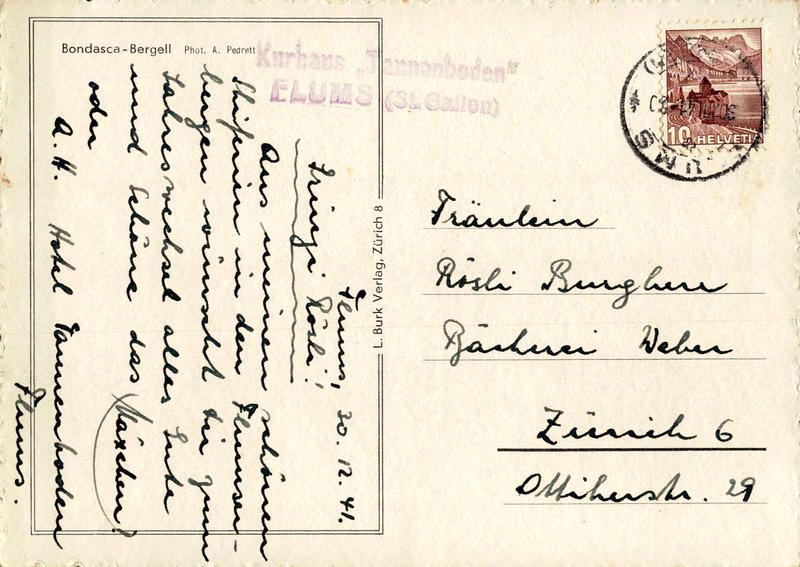 Bondasca-Bergell Phot. A. Pedrett
Kurhaus „Tannenboden"
FLUMS (St. Gallen)
10 HELVETIA
Flums, 30. 12. 41.
Rösli!
Aus meinen schönen
Skiferien in den Flumser-
bergen wünscht dir zum
Jahreswechsel alles Gute
und Schöne das Mäxchen?
oder
A. H. Hotel Tannenboden
Flums.
L. Burk Verlag, Zürich 8
Fräulein
Rösli Burgherr
Bäckerei Weber
Zürich 6
Ottikerstr. 29